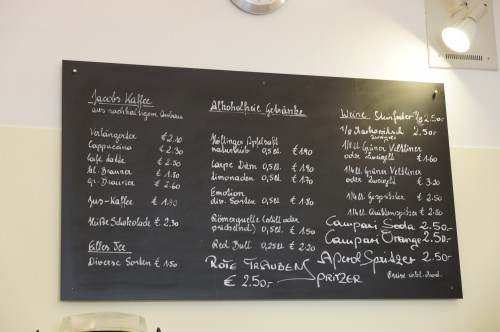 Jacobs Kaffee
aus nachhaltigem Anbau
Verlängerter € 2.10
Cappuccino € 2.30
Café Latte € 2.30
kl. Brauner € 1.70
Gr. Brauner € 2.60
Jus-Kaffee € 1.30
Heiße Schokolade € 2.30
Eilles Tee
Diverse Sorten € 1.50
Alkoholfreie Getränke
Höllinger Apfelsaft
naturtrüb 0,5l. € 1.90
Carpe Diem 0,5l. € 1.90
Limonaden 0,5l. € 1.70
Emotion
div. Sorten 0,5l. € 1.30
Römerquelle (still oder
prickelnd) 0,5l. € 1.30
Red Bull 0,25l. € 2.20
Rote Trauben
Spritzer
€ 2.50.-
Weine Sturm 1/8 2.50.-
2.50.-
1/8l Grüner Veltliner
oder Zweigelt € 1.60
1/4l. Grüner Veltliner
oder Zweigelt € 3.20
1/4l. Gespritzter € 2.50
1/4l. 2.50
Campari Soda 2.50.-
Campari Orange 2.50.-
Aperol Spritzer 2.50.-
Preise inkl. Mwst.